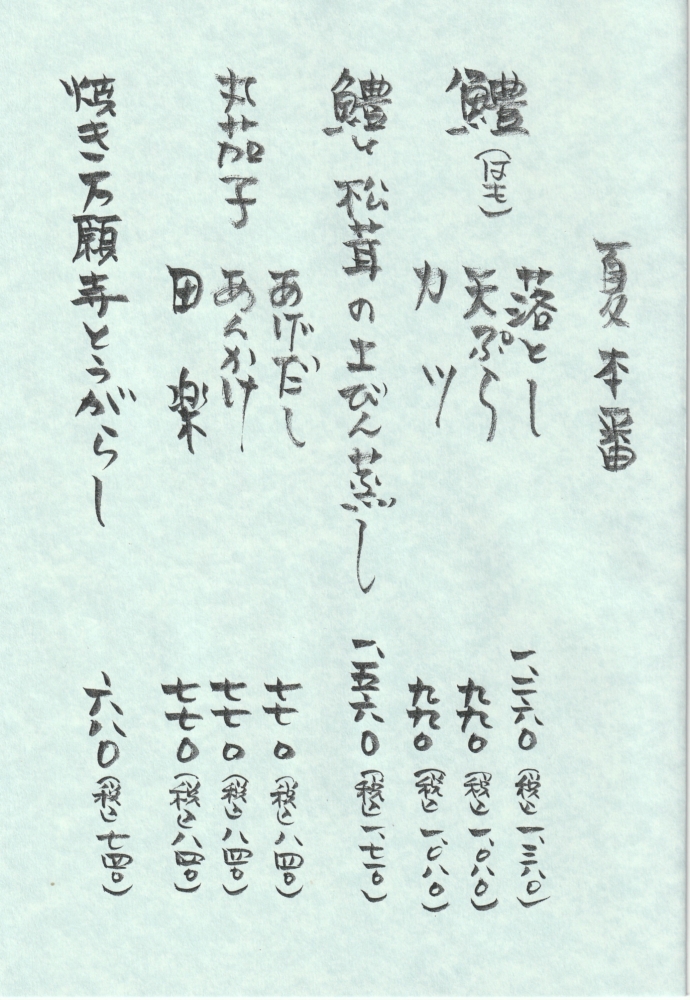 夏本番
鱧（はも）
落とし　一、二六〇（税込一、三八〇）
天ぷら　九九〇（税込一、〇八〇）
カツ　九九〇（税込一、〇八〇）
鱧と松茸の土びん蒸し　一、五六〇（税込一、七一〇）
丸茄子
あげだし　七七〇（税込八四〇）
あんかけ　七七〇（税込八四〇）
田楽　七七〇（税込八四〇）
焼き万願寺とうがらし　六八〇（税込七四〇）